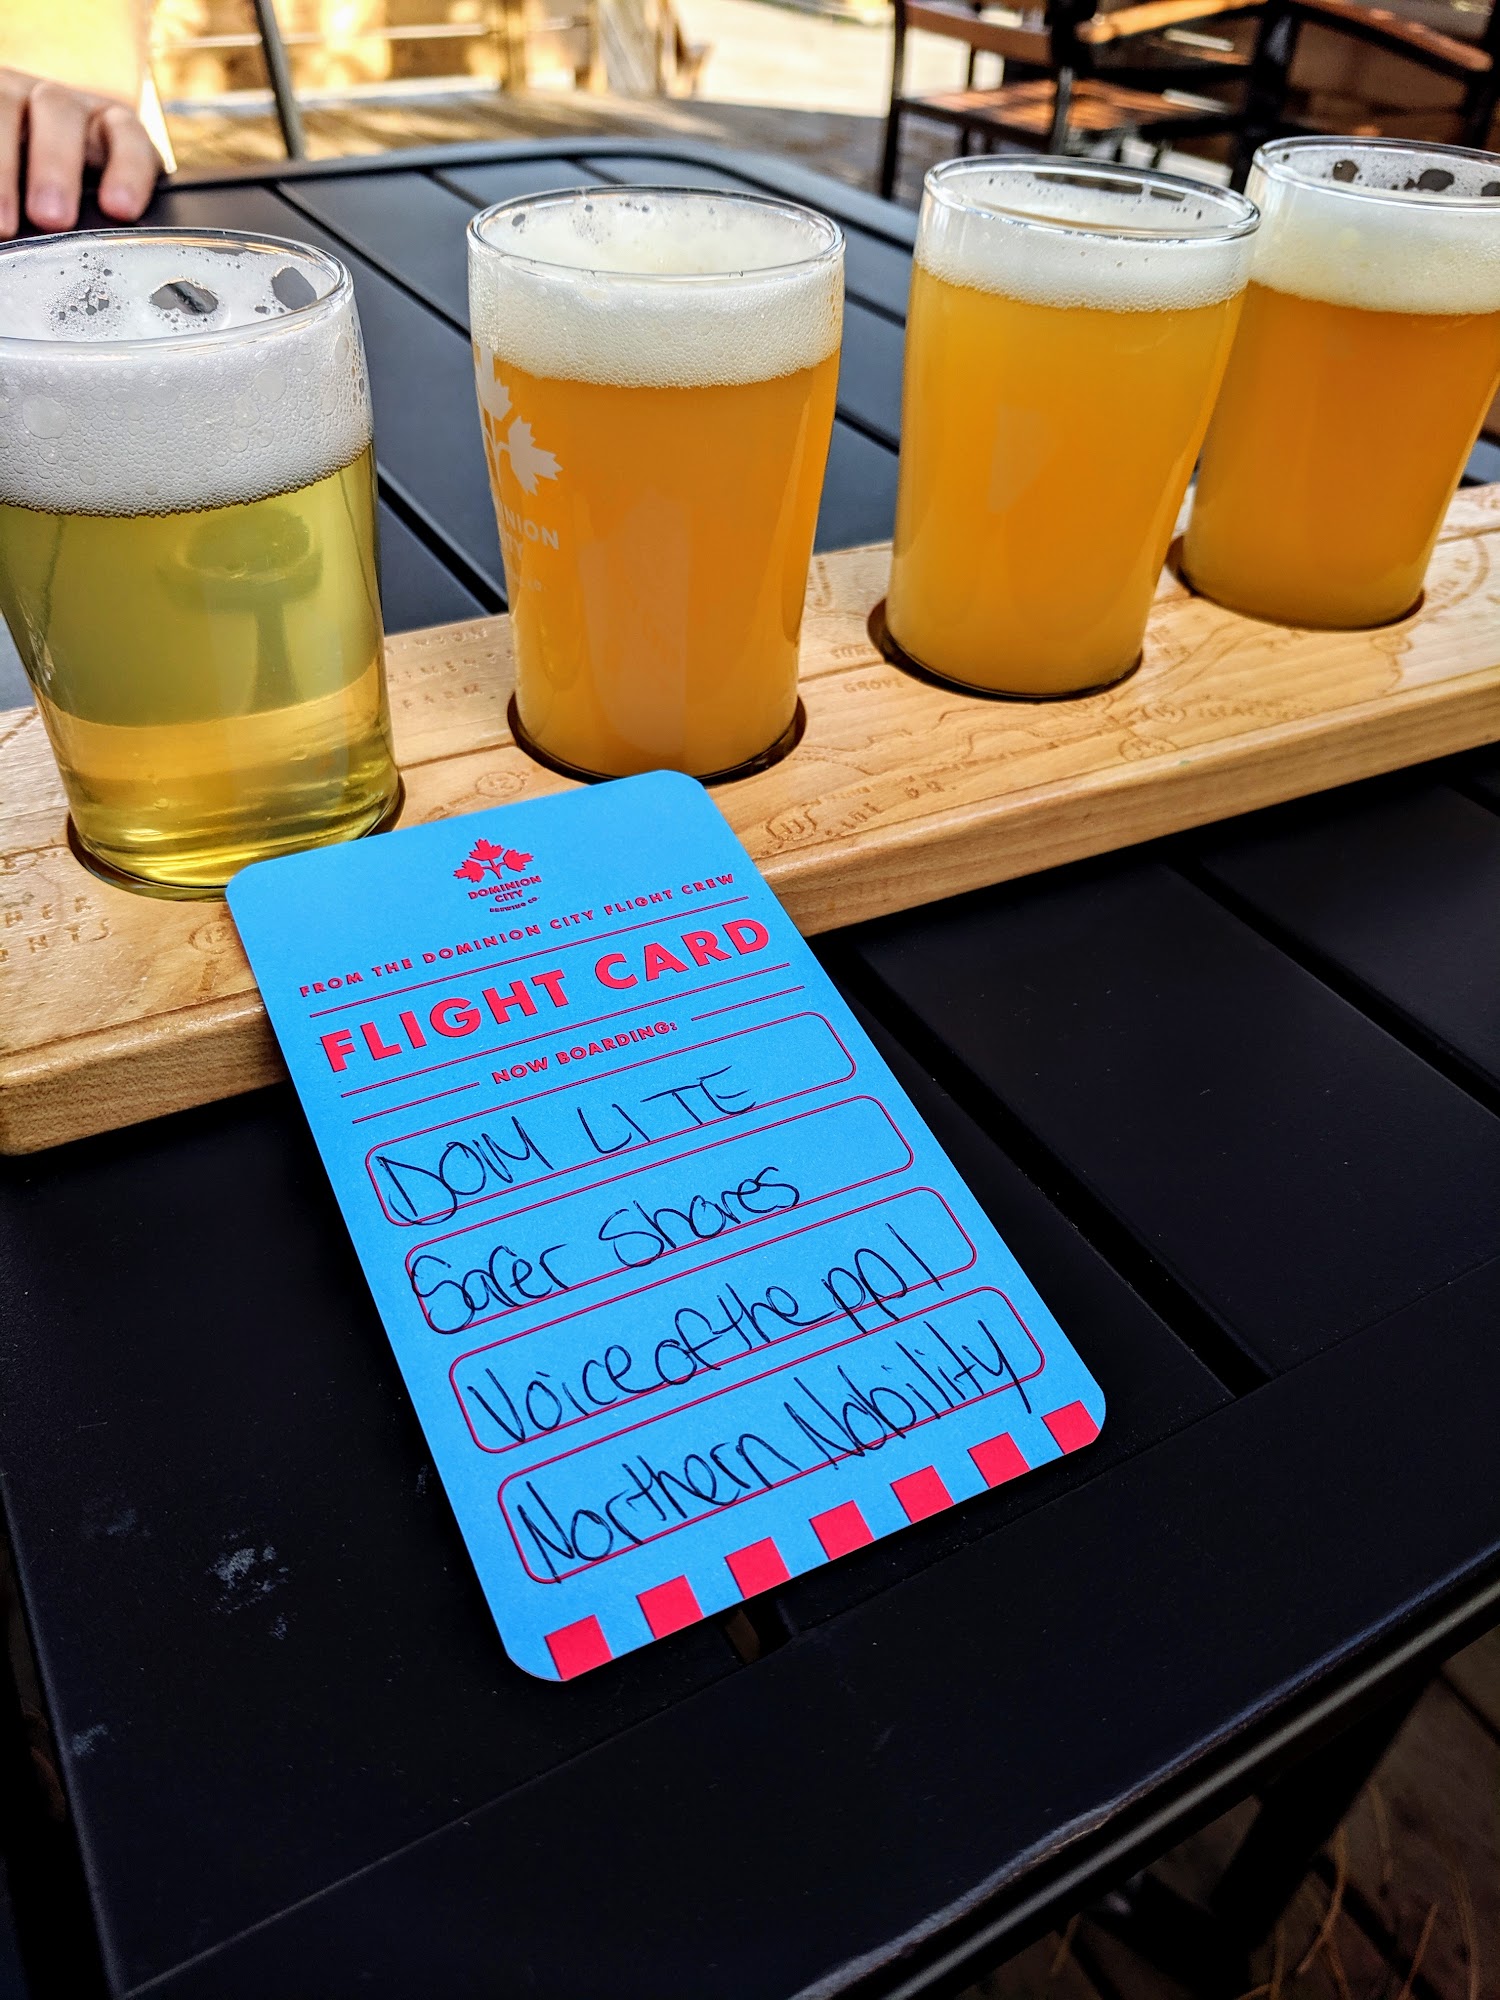 DOMINION
CITY
BREWING CO.
FROM THE DOMINION CITY FLIGHT CREW
FLIGHT CARD
NOW BOARDING:
DOM LITE
Safer Shores
Voice of the ppl
Northern Nobility